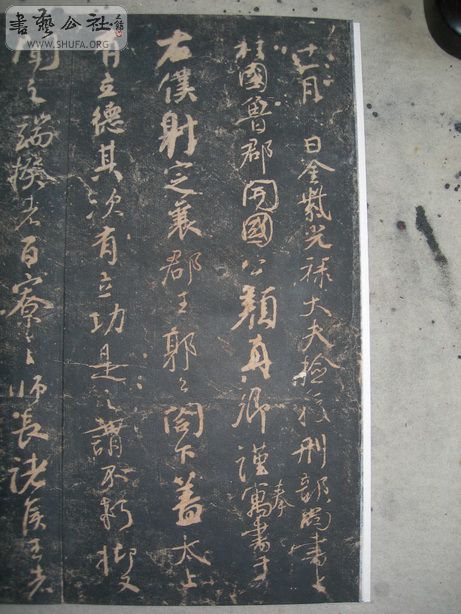 十一月日金紫光祿大夫檢校刑部尚書上
柱國魯郡開國公顏真卿謹奉寓書于
右僕射定襄郡王郭公閤下蓋太上
有立德其次有立功是之謂不朽抑又
聞之端揆者百寮之師長諸侯王者
書藝公社
WWW.SHUFA.ORG